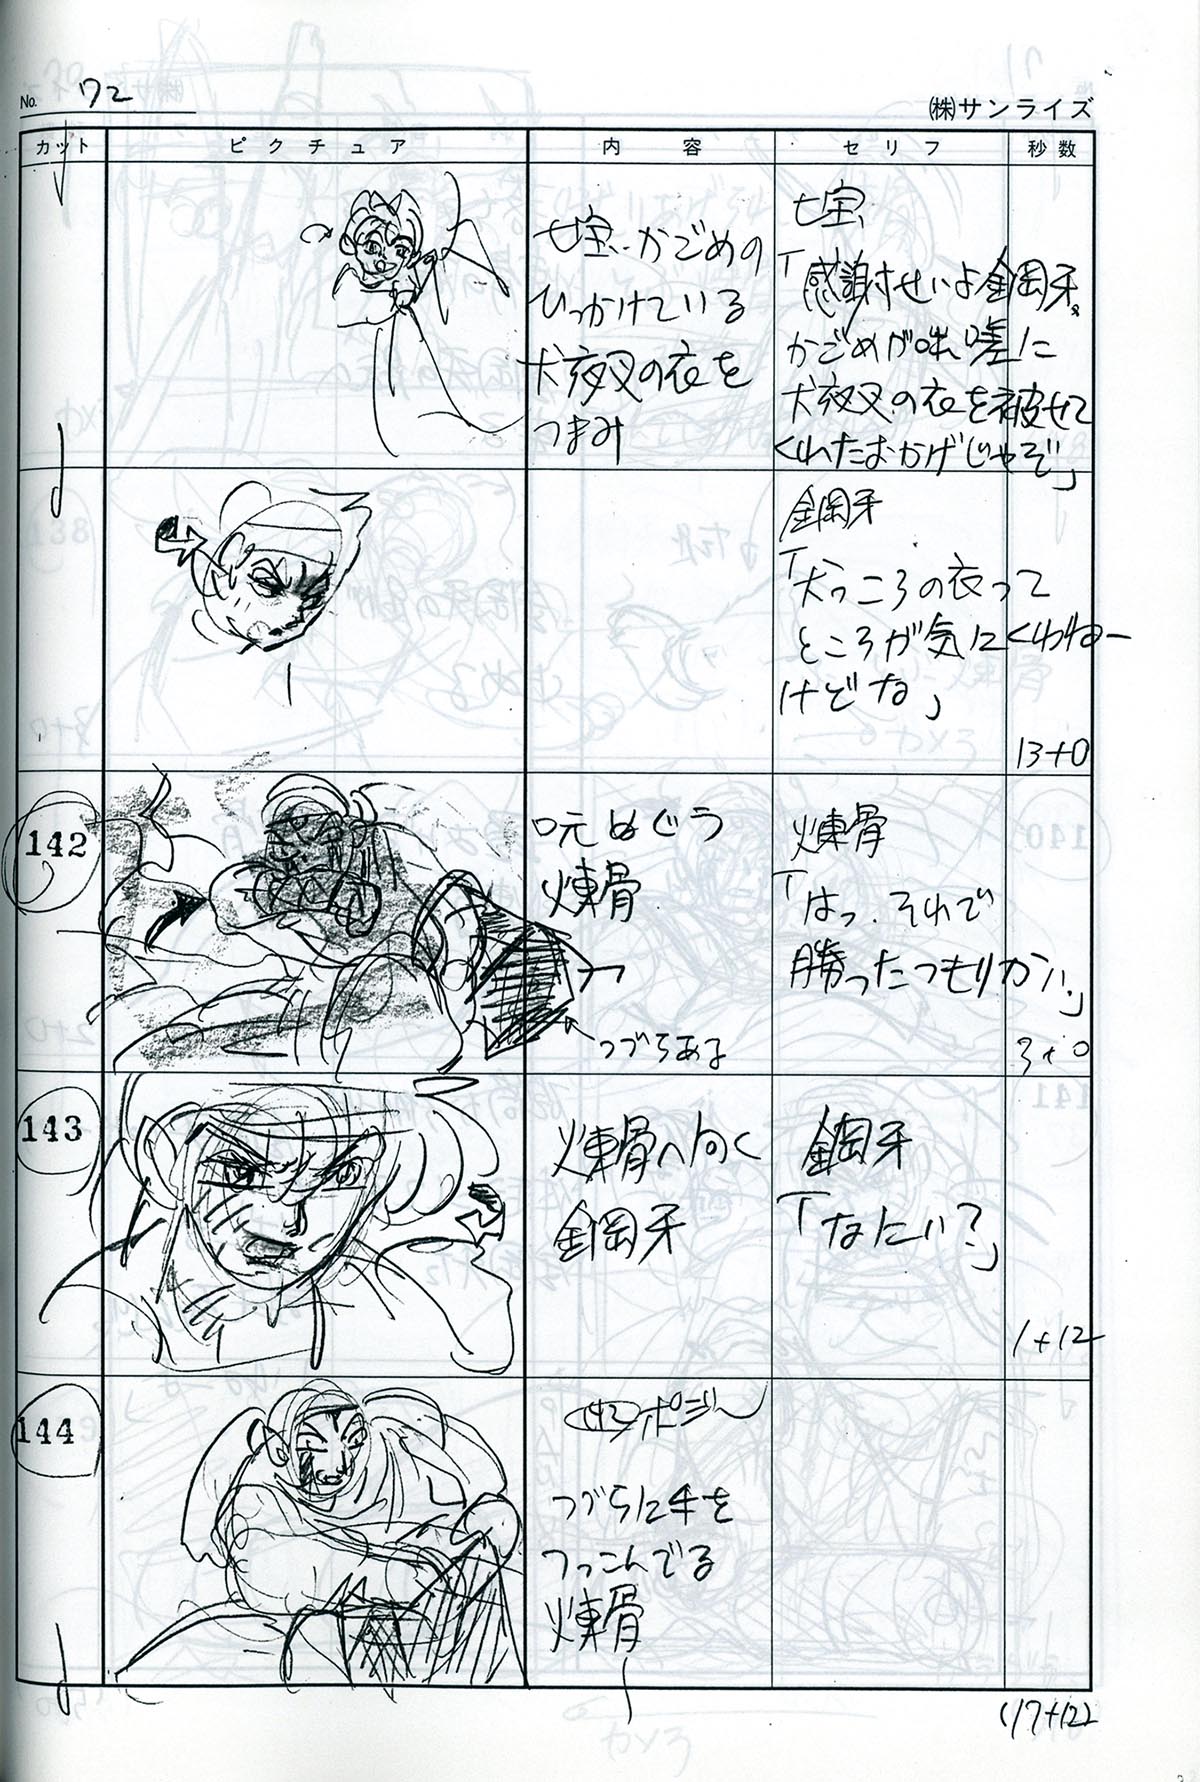 No. 72
(株)サンライズ
カット ピクチュア 内容 セリフ 秒数
七宝、かごめの
ひっかけている
犬夜叉の衣を
つまみ
七宝
「感謝せいよ鋼牙。
かごめが咄嗟に
犬夜叉の衣を被せて
くれたおかげじゃぞ」
鋼牙
「犬っころの衣って
ところが気にくわねー
けどな」
13+0
142
煉骨
つづらある
煉骨
「はっ、それで
勝ったつもりかい」
3+0
143
煉骨へ向く
鋼牙
鋼牙
「なにい?」
1+12
144
142ポジ
つづらに手を
つっこんでる
煉骨
(17+12)